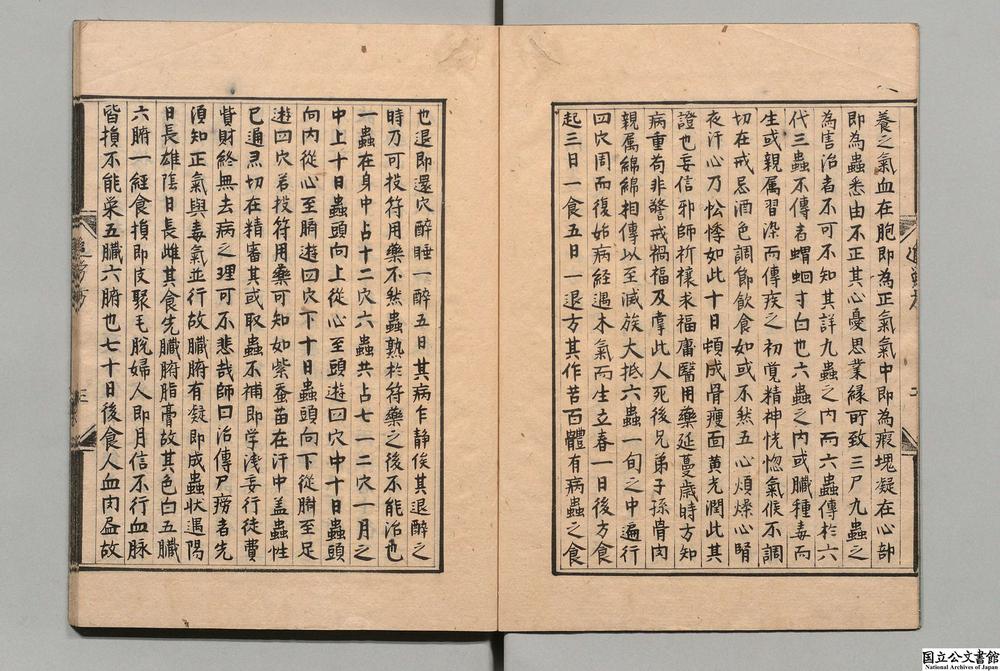 養之氣血在胞即為正氣氣中即為瘕塊凝在心部
即為蟲悉由不正其心憂思業縁所致三尸九蟲之
為害治者不可不知其詳九蟲之内而六蟲傳於六
代三蟲不傳者蝟蛔寸白也六蟲之内或臟種毒而
生或親属習染而傳疾之初覚精神恍惚氣候不調
切在戒忌酒色調節飲食如或不然五心煩燥心腎
夜汗心乃忪悸如此十日頓成骨瘦面黄光潤此其
證也妄信邪師祈禳求福庸醫用藥延蔓歳時方知
病重苟非警戒禍福及掌此人死後兄弟子孫骨肉
親属綿綿相傳以至滅族大抵六蟲一旬之中遍行
四穴周而復始病經遇木氣而生立春一日後方食
起三日一食五日一退方其作苦百體有病蟲之食
也退即還穴醉睡一醉五日其病乍静俟其退醉之
時乃可投符用藥不然蟲熟於符藥之後不能治也
一蟲在身中占十二穴六蟲共占七一二穴一月之
中上十日蟲頭向上從心至頭遊四穴中十日蟲頭
向内從心至臍遊四穴下十日蟲頭向下從臍至足
遊四穴若投符用藥可知如紫蚕苗在汗中盖蟲性
已通灵切在精審其或取蟲不補即学淺妄行徒費
貲財終無去病之理可不悲哉師曰治傳尸癆者先
須知正氣與毒氣並行故臟腑有凝即成蟲状遇陽
日長雄陰日長雌其食先臟腑脂膏故其色白五臟
六腑一經食損即皮聚毛脱婦人即月信不行血脉
皆損不能榮五臟六腑也七十日後食人血肉盡故
三
国立公文書館
National Archives of Japan